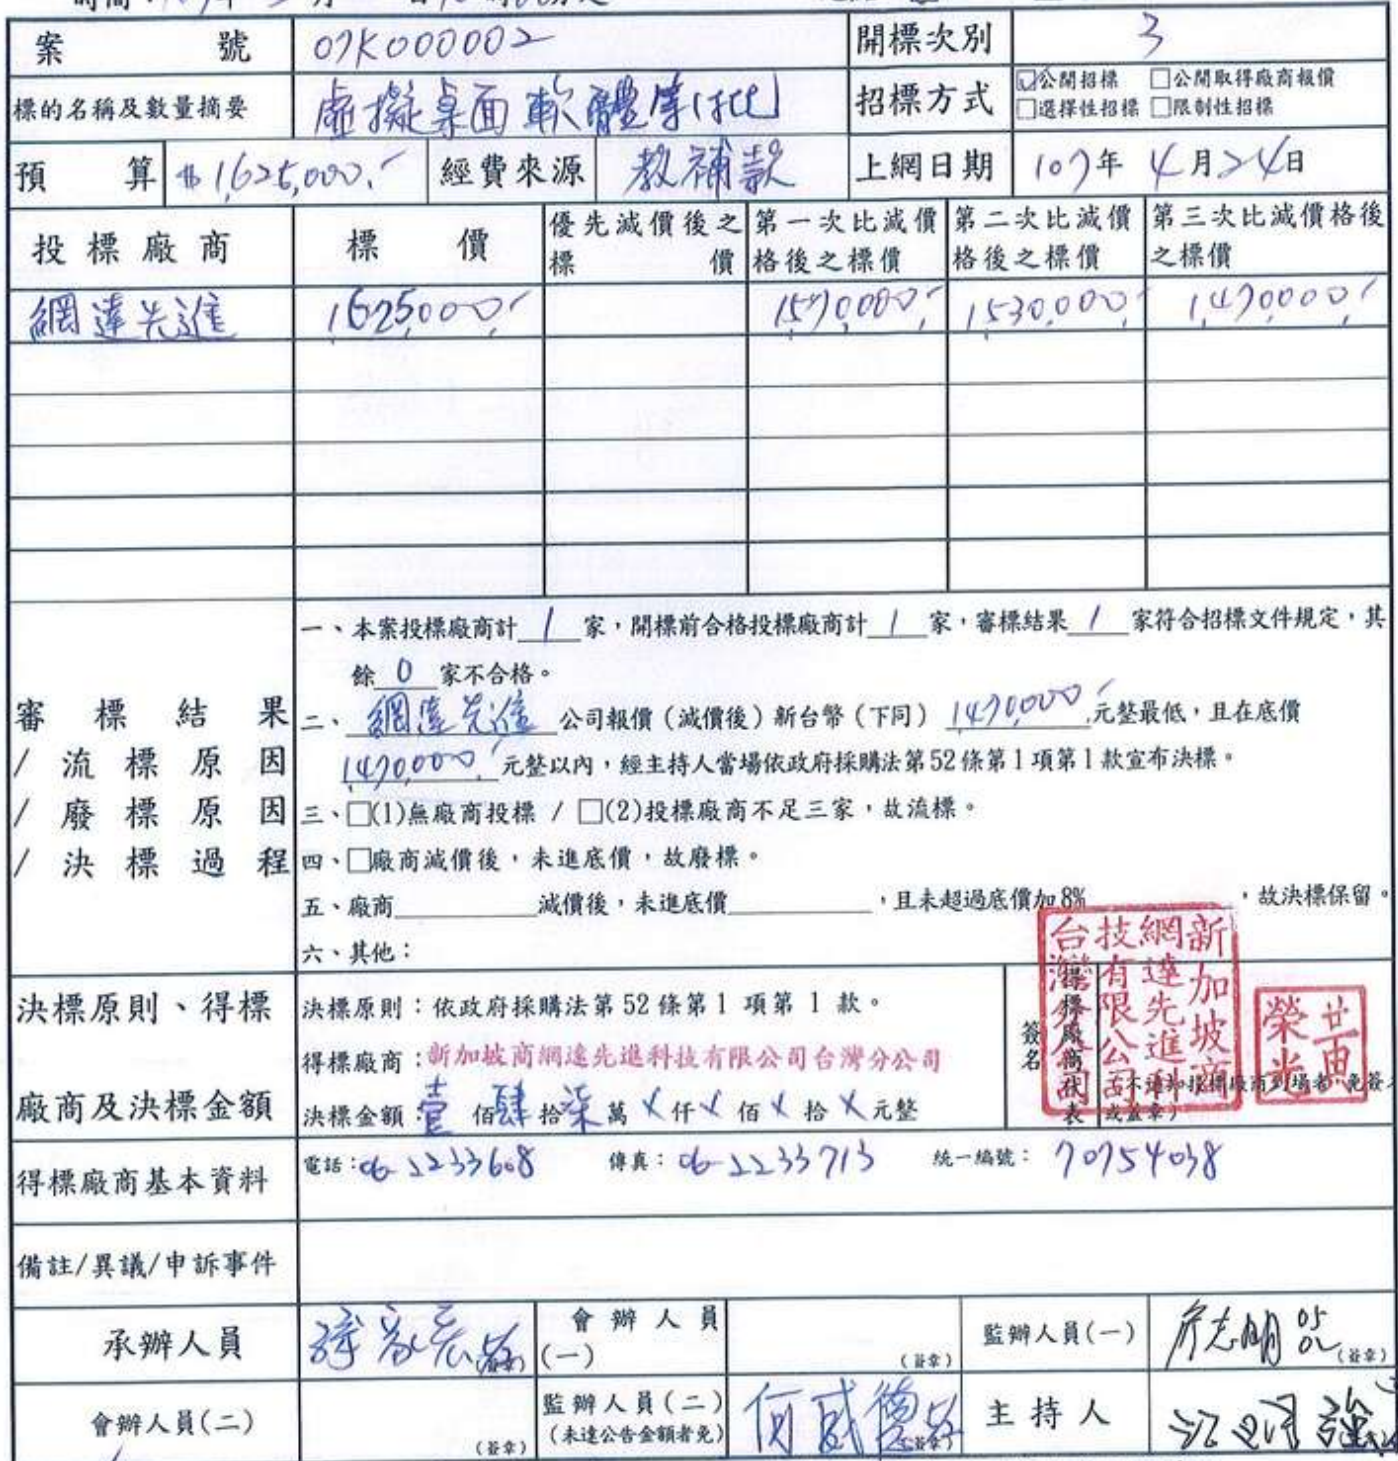 案號 07K000002 開標次別 3
標的名稱及數量摘要 虛擬桌面軟體壹(批) 招標方式 ☑公開招標 □公開取得廠商報價
□選擇性招標 □限制性招標
預算 $1,625,000.- 經費來源 教補款 上網日期 107年4月24日
投標廠商 標價 優先減價後之標價 第一次比減價格後之標價 第二次比減價格後之標價 第三次比減價格後之標價
網達先進 1,625,000.- 1,570,000.- 1,530,000.- 1,470,000.-
審標結果/流標原因/廢標原因/決標過程
一、本案投標廠商計 1 家,開標前合格投標廠商計 1 家,審標結果 1 家符合招標文件規定,其
餘 0 家不合格。
二、網達先進 公司報價(減價後)新台幣(下同)1,470,000.-元整最低,且在底價
1,470,000.-元整以內,經主持人當場依政府採購法第52條第1項第1款宣布決標。
三、□(1)無廠商投標 / □(2)投標廠商不足三家,故流標。
四、□廠商減價後,未進底價,故廢標。
五、廠商 減價後,未進底價 ,且未超過底價加8% ,故決標保留。
六、其他:
決標原則、得標廠商及決標金額
決標原則:依政府採購法第 52 條第 1 項第 1 款。
得標廠商:新加坡商網達先進科技有限公司台灣分公司
決標金額:壹佰肆拾柒萬X仟X佰X拾X元整
得標廠商代表簽名
新加坡商網達先進科技有限公司台灣分公司
黃榮光
得標廠商基本資料 電話:06-2233608 傳真:06-2233713 統一編號:70754038
備註/異議/申訴事件
承辦人員 (簽章) 會辦人員(一) (簽章) 監辦人員(一) 05 02 (簽章)
會辦人員(二) (簽章) 監辦人員(二)(未達公告金額者免) 何威德 (簽章) 主持人